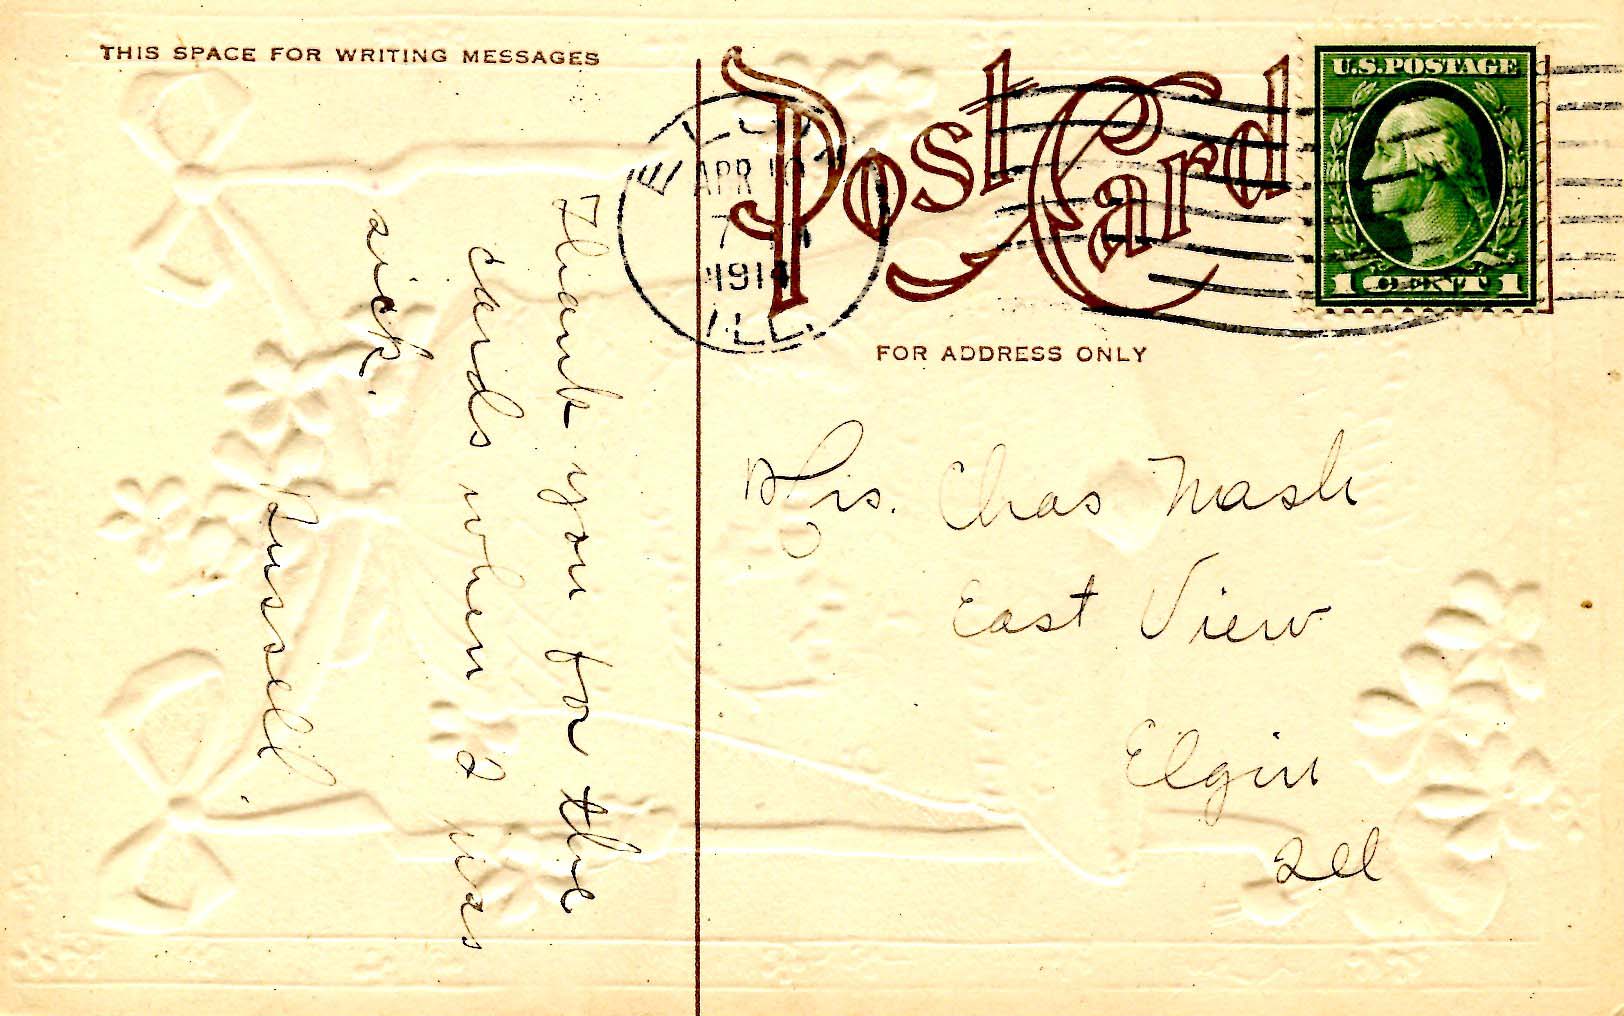 THIS SPACE FOR WRITING MESSAGES
Post Card
U.S. POSTAGE
1 CENT 1
APR 10
7
1914
ILL.
FOR ADDRESS ONLY
Thank you for the
cards when I was
sick.
Russell.
Mrs. Chas Nash
East View
Elgin
Ill